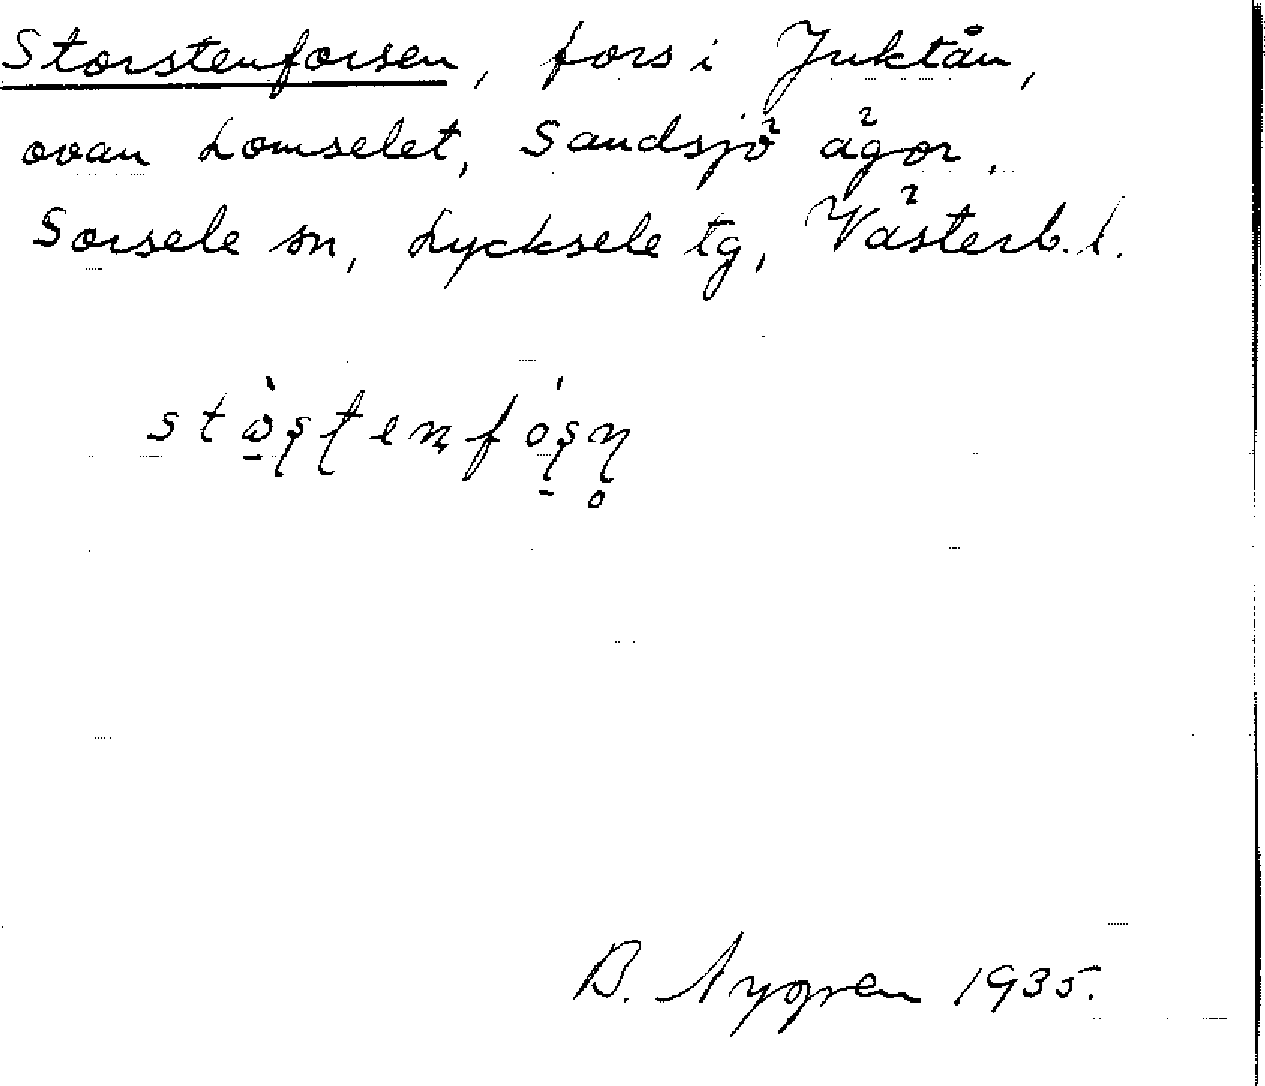 Storstenforsen, fors i Juktån,
ovan Lomselet, Sandsjö ägor.
Sorsele sn, Lycksele tg, Västerb. l.
B. Nygren 1935.